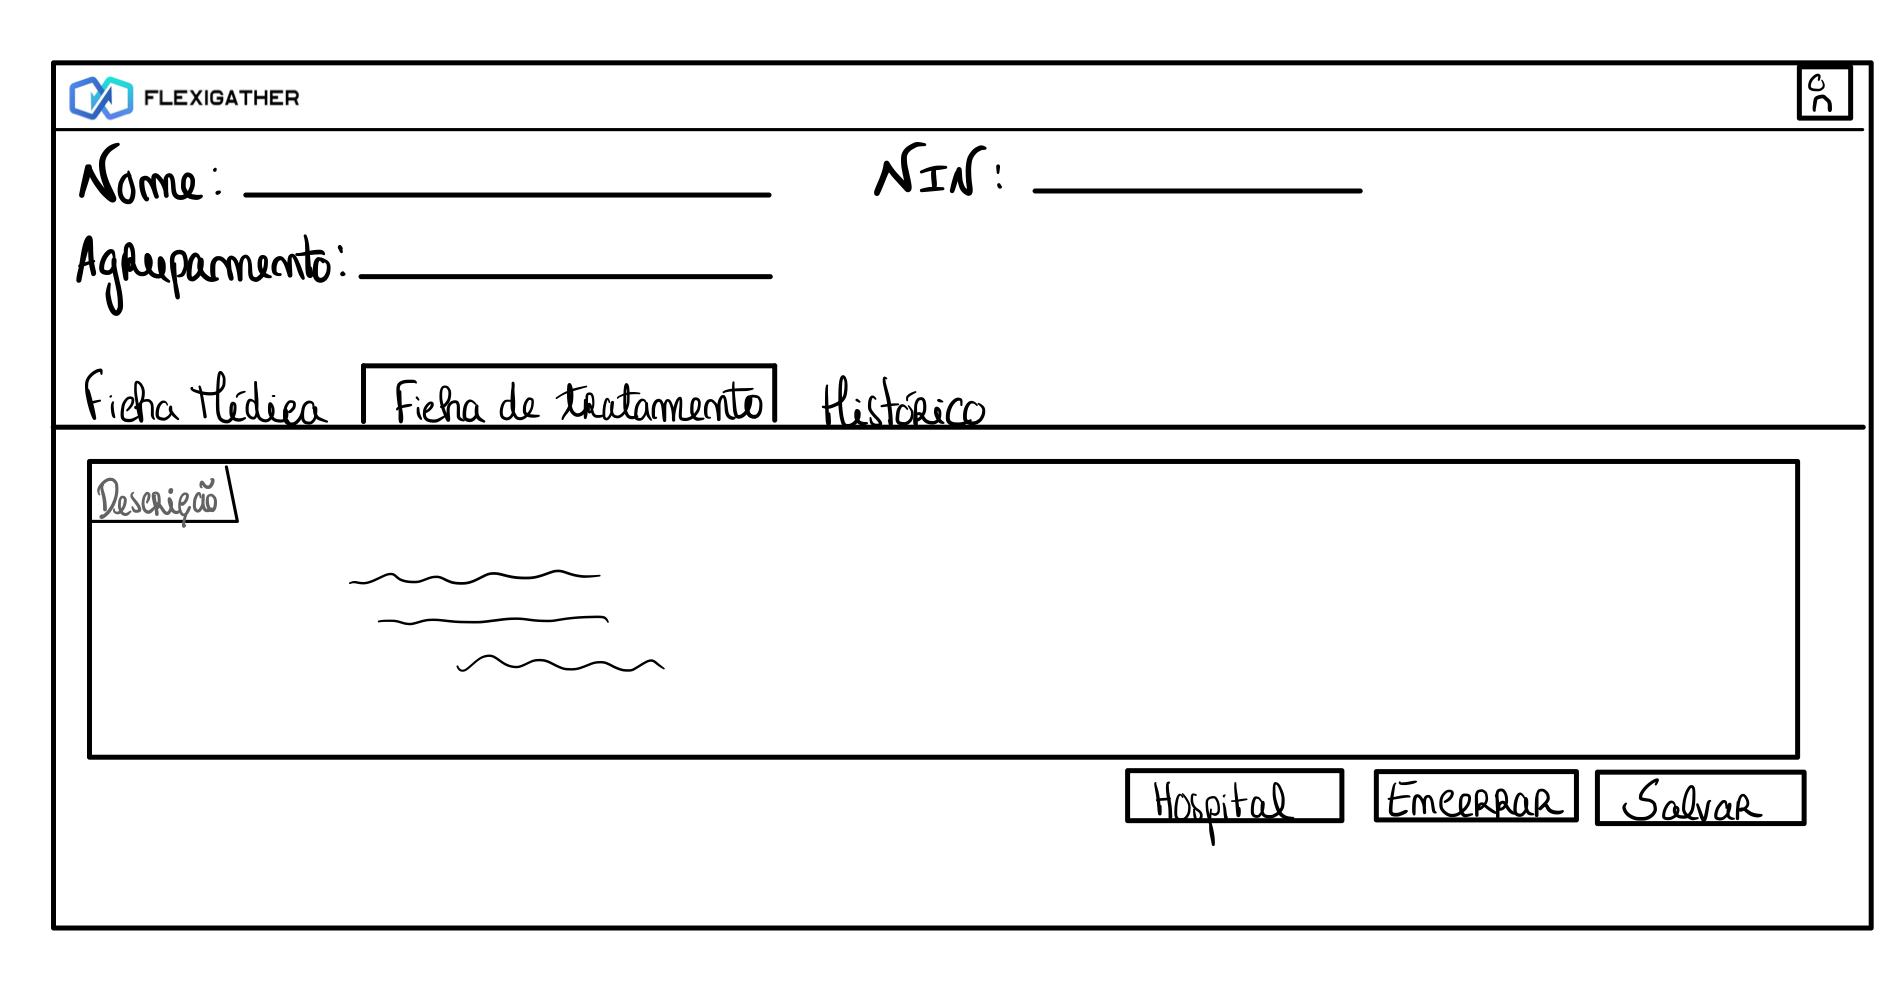 FLEXIGATHER
Nome: NIN:
Agrupamento:
Ficha Médica Ficha de tratamento Histórico
Descrição
Hospital Encerrar Salvar